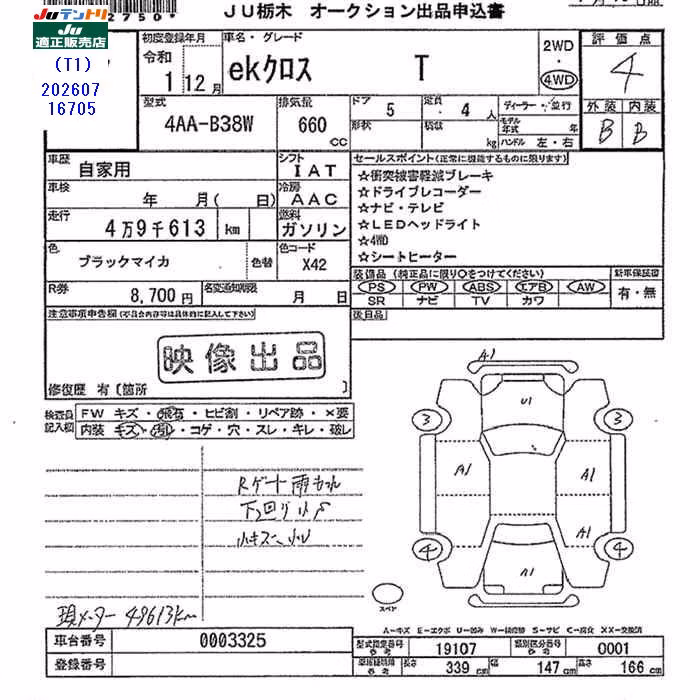 JU栃木 オークション出品申込書
Juテントリ
JU適正販売店
(T1)
202607
16705
2750*
初度登録年月
令和
1 12月
車名・グレード
ekクロス T
2WD
4WD
評価点
4
外装 内装
B B
型式
4AA-B38W
排気量
660
CC
ドア
5
定員
4 人
形状
積載
kg
ディーラー・並行
モデル年式 年
ハンドル 左・右
車歴
自家用
シフト
IAT
車検
年 月( 日)
冷房
AAC
走行
4万9千613 km
燃料
ガソリン
色
ブラックマイカ
色替
色コード
X42
R券
8,700円
名変通知期限
月 日
セールスポイント(正常に機能するものに限ります)
☆衝突被害軽減ブレーキ
☆ドライブレコーダー
☆ナビ・テレビ
☆LEDヘッドライト
☆4WD
☆シートヒーター
装備品(純正品に限り○をつけてください)
新車保証書
PS PW ABS エアB AW
SR ナビ TV カワ
有・無
後日品
注意事項申告欄(不具合内容等は具体的に記入して下さい)
映像出品
修復歴 有〔箇所 〕
検査員記入欄
FW キズ・飛石・ヒビ割・リペア跡・×要
内装 キズ・汚れ・コゲ・穴・スレ・キレ・破レ
Rゲート雨もれ
下回りサビ
小キズ
現メーター 49613km
A1
U1
3 3
A1 A1
A1
4 4
A1
スペア
A-キズ E-エクボ U-凹み W-補修跡 S-サビ C-腐食 XX-交換済
車台番号
0003325
登録番号
型式指定番号 参考
19107
類別区分番号 参考
0001
車両積載時 参考
長さ 339cm
幅 147cm
高さ 166cm